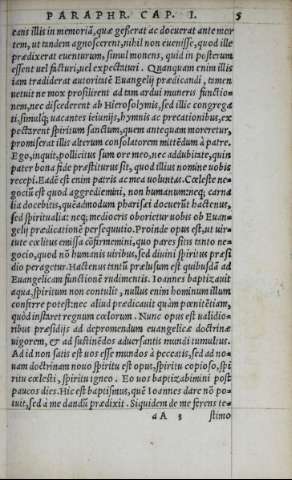 PARAPHR. CAP. I. 5
cans illis in memoriã, quæ gesserat ac docuerat ante mor
tem, ut tandem agnoscerent, nihil non euenisse, quod ille
prædixerat euenturum, simul monens, quid in posterum
essent uel facturi, uel expectaturi. Quanquam enim illis
iam tradiderat autoritatẽ Euangelij prædicandi, tamen
uetuit ne mox prosilirent ad tam ardui muneris functio-
nem, nec discederent ab Hierosolymis, sed illic congrega
ti, simulq; uacantes ieiunijs, hymnis ac precationibus, ex
pectarent spiritum sanctum, quem antequam moreretur,
promiserat illis alterum consolatorem mittẽdum à patre.
Ego, inquit, pollicitus sum ore meo, nec addubitate, quin
pater bona fide præstiturus sit, quod illius nomine uobis
recepi. Eadẽ est enim patris ac mea uoluntas. Cœleste ne-
gociũ est quod aggrediemini, non humanum: neq; carna
lia docebitis, quẽadmodum pharisæi docuerũt hactenus,
sed spiritualia: neq; mediocris oborietur uobis ob Euan-
gelij prædicationẽ persequutio. Proinde opus est, ut uir-
tute cœlitus emissa cõfirmemini, quo pares sitis tanto ne-
gocio, quod nõ humanis uiribus, sed diuini spiritus præsi
dio peragetur. Hactenus tantũ prælusum est quibusdã ad
Euangelicam functionẽ rudimentis. Ioannes baptizauit
aqua, spiritum non contulit, nullus enim hominum illum
conferre potest: nec aliud prædicauit quàm pœnitẽtiam,
quòd instaret regnum cœlorum. Nunc opus est ualidio-
ribus præsidijs ad depromendum euangelicæ doctrinæ
uigorem, & ad sustinẽdos aduersantis mundi tumultus.
Ad id non satis est uos esse mundos à peccatis, sed ad no-
uam doctrinam nouo spiritu est opus, spiritu copioso, spi
ritu cœlesti, spiritu igneo. Eo uos baptizabimini post
paucos dies. Hic est baptismus, quẽ Ioannes dare nõ po-
tuit, sed à me dandũ prædixit. Siquidem de me ferens te-
a A 3 stimo